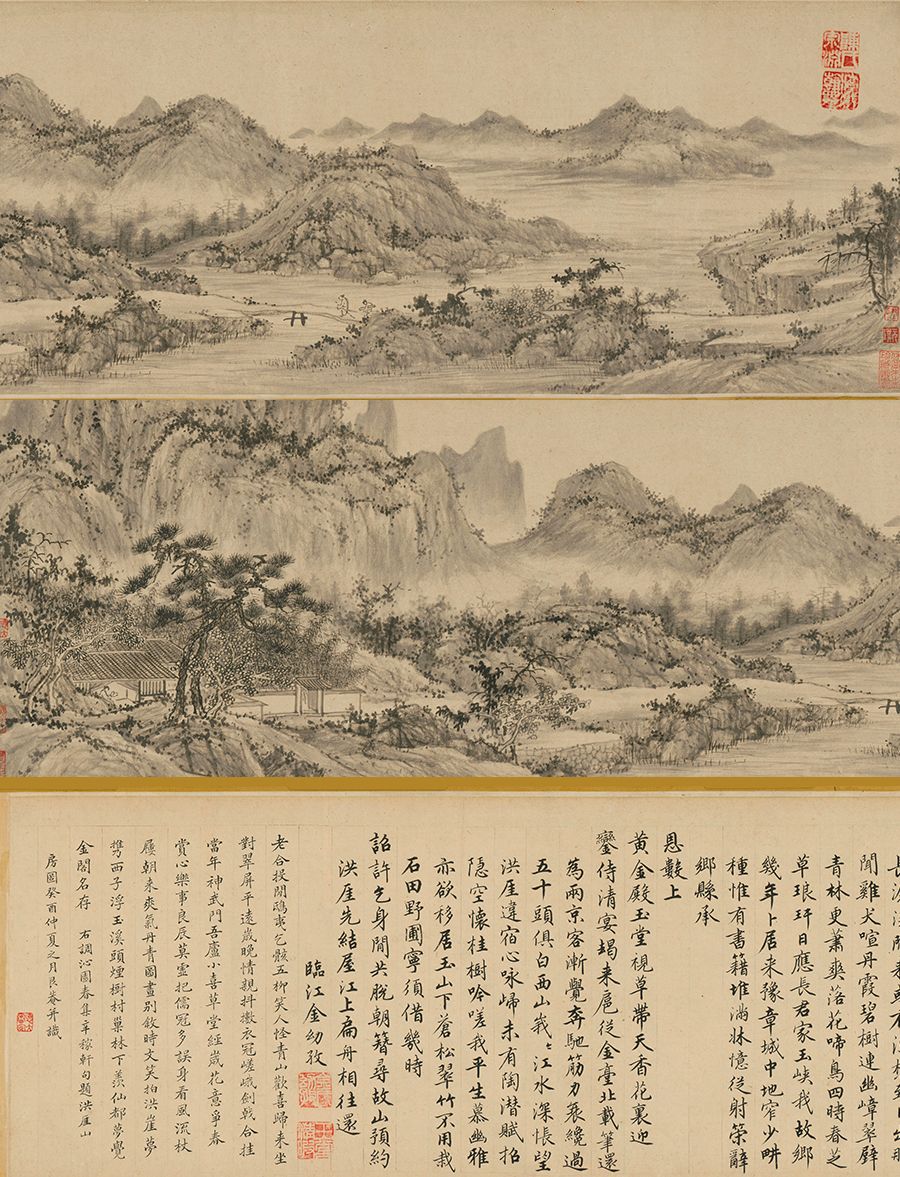 聞雞犬喧丹霞碧樹連幽嶂翠壁
青林更蕭爽落花啼鳥四時春芝
草琅玕日應長君家玉峽我故鄉
幾年卜居来豫章城中地窄少畊
種惟有書籍堆滿牀憶從射策辭
鄉縣承
恩數上
黃金殿玉堂視草帶天香花裏迎
鑾侍清宴朅来扈從金臺北載筆還
為兩京客漸覺奔馳筋力衰纔過
五十頭俱白西山峩〻江水深悵望
洪厓違宿心咏歸未有陶潛賦招
隱空懷桂樹吟嗟我平生慕幽雅
亦欲移居玉山下蒼松翠竹不用栽
石田野圃寧須借幾時
詔許乞身閒共脫朝簪尋故山預約
洪厓先結屋江上扁舟相往還
臨江金幼孜
老合投閒鴟夷乞骸五柳笑人怪青山歡喜歸来坐
對翠屏平遠歲晚情親抖擻衣冠嵯峨劍戟合挂
當年神武門吾廬小喜草堂經歲花意爭春
賞心樂事良辰莫把儒冠多誤身看風流杖
屨朝来爽氣丹青圖畫別時文笑拍洪崖夢
攜西子浮玉溪頭煙樹村巢林下羨仙都夢覺
金閣名存 右調沁園春集辛稼軒句題洪厓山
房圖癸酉仲夏之月艮菴并識